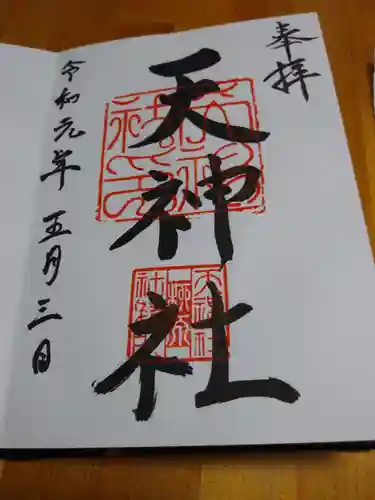 奉拝
天神社
令和元年 五月三日